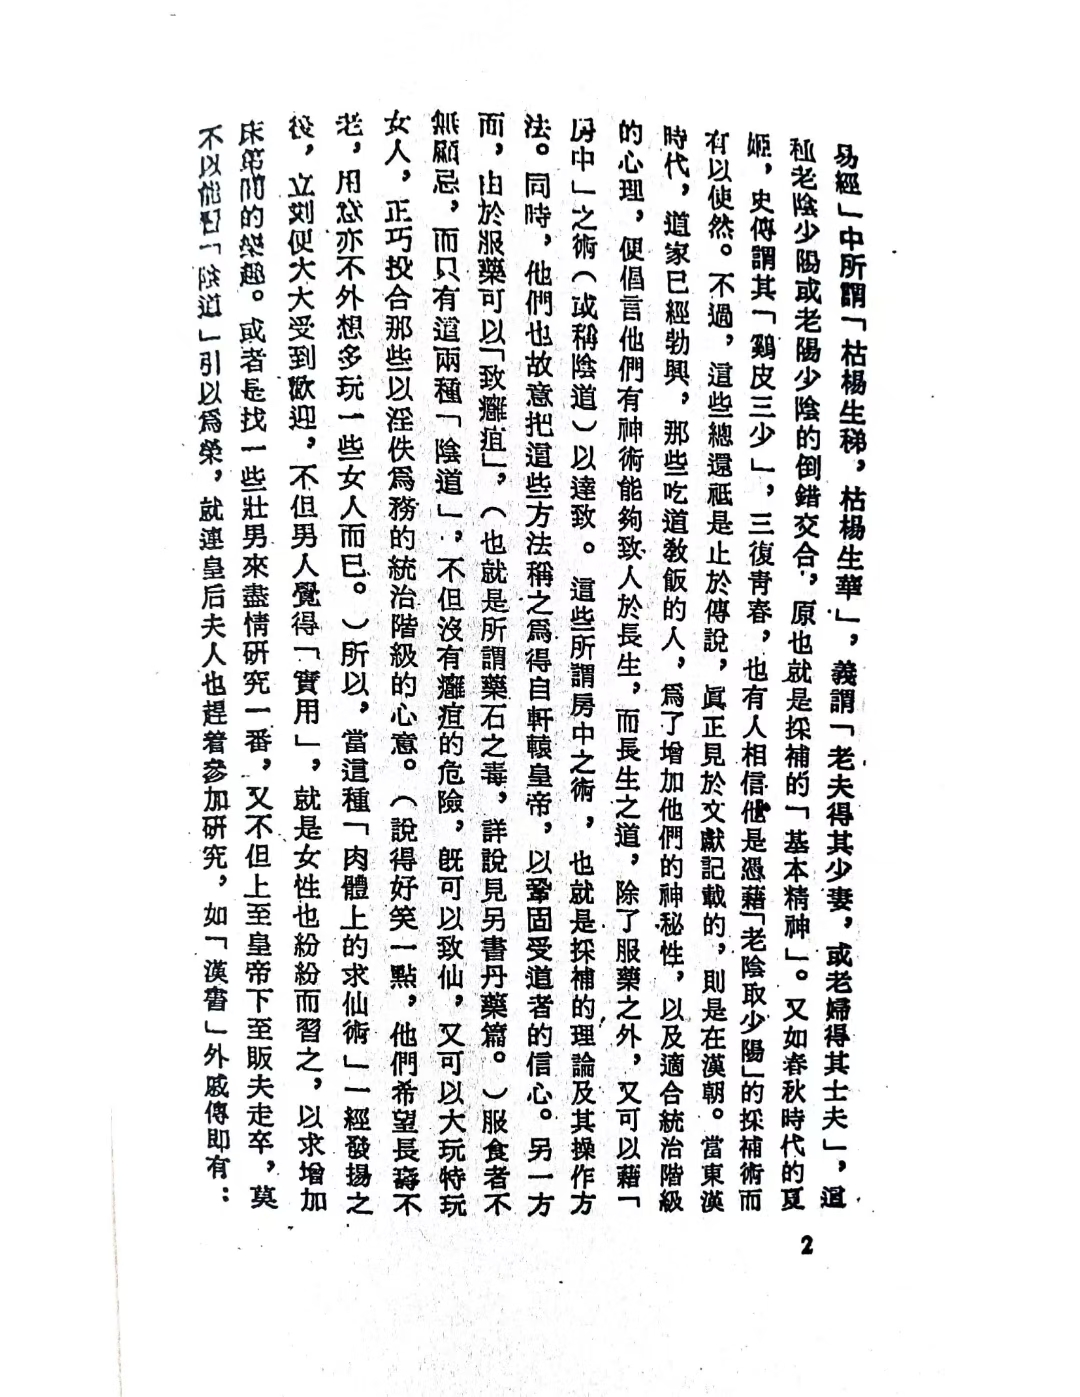 易經」中所謂「枯楊生稊，枯楊生華」，義謂「老夫得其少妻，或老婦得其士夫」，這
種老陰少陽或老陽少陰的倒錯交合，原也就是採補的「基本精神」。又如春秋時代的夏
姬，史傳謂其「鷄皮三少」，三復青春，也有人相信他是憑藉「老陰取少陽」的採補術而
有以使然。不過，這些總還祗是止於傳說，眞正見於文獻記載的，則是在漢朝。當東漢
時代，道家已經勃興，那些吃道敎飯的人，爲了增加他們的神秘性，以及適合統治階級
的心理，便倡言他們有神術能夠致人於長生，而長生之道，除了服藥之外，又可以藉「
房中」之術（或稱陰道）以達致。這些所謂房中之術，也就是採補的理論及其操作方
法。同時，他們也故意把這些方法稱之爲得自軒轅皇帝，以鞏固受道者的信心。另一方
而，由於服藥可以「致癰疽」，（也就是所謂藥石之毒，詳說見另書丹藥篇。）服食者不
無顧忌，而只有這兩種「陰道」，不但沒有癰疽的危險，旣可以致仙，又可以大玩特玩
女人，正巧投合那些以淫佚爲務的統治階級的心意。（說得好笑一點，他們希望長壽不
老，用意亦不外想多玩一些女人而已。）所以，當這種「肉體上的求仙術」一經發揚之
後，立刻便大大受到歡迎，不但男人覺得「實用」，就是女性也紛紛而習之，以求增加
床笫間的樂趣。或者是找一些壯男來盡情研究一番，又不但上至皇帝下至販夫走卒，莫
不以能習「陰道」引以爲榮，就連皇后夫人也趕着參加研究，如「漢書」外戚傳即有：
2